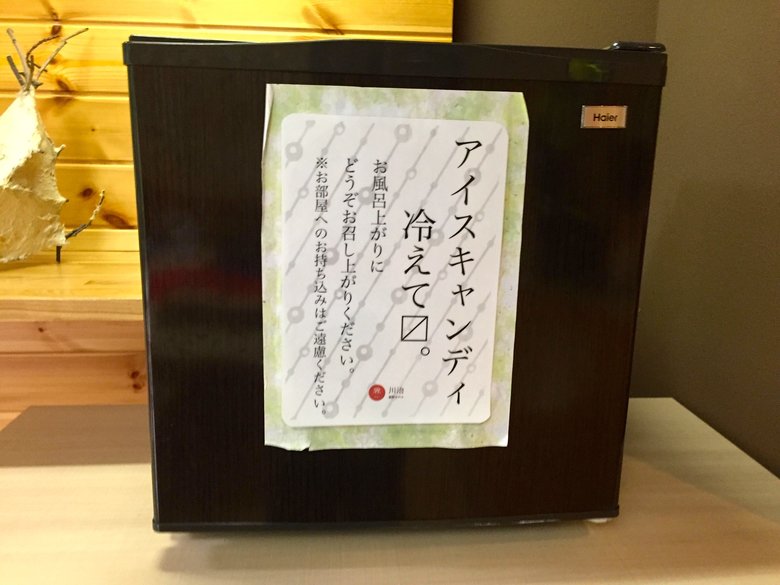 アイスキャンディ
冷えて〼。
お風呂上がりに
どうぞお召し上がりください。
※お部屋へのお持ち込みはご遠慮ください。
川治
Haier